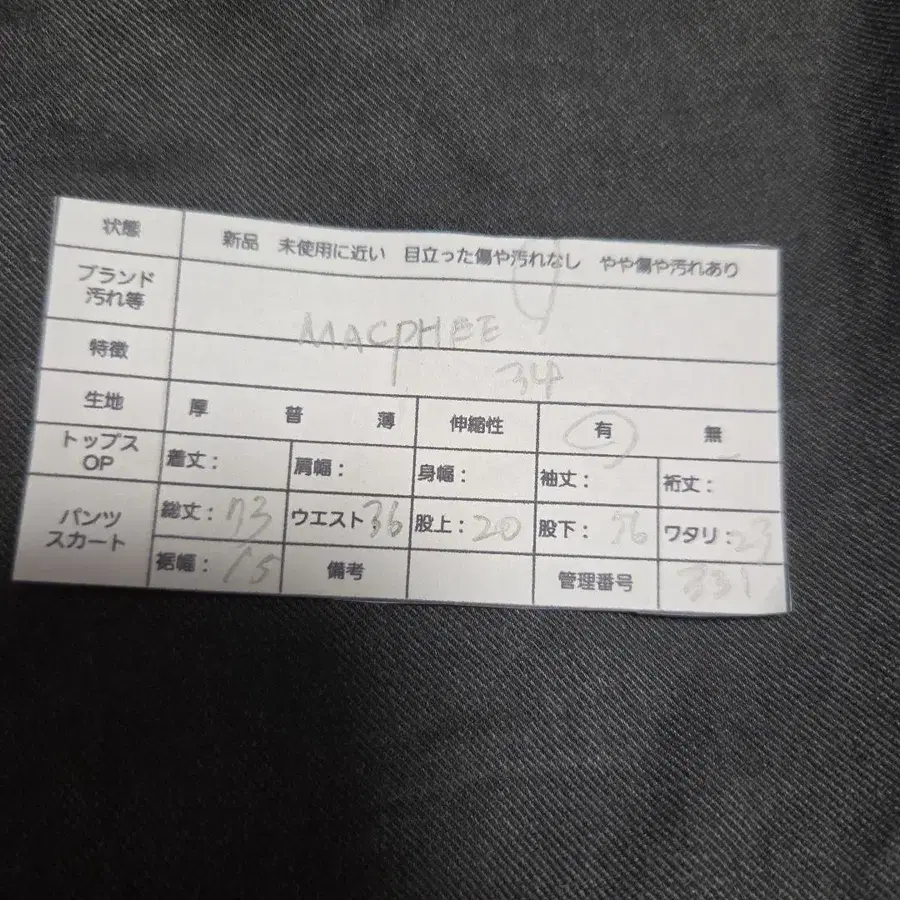 状態 新品 未使用に近い 目立った傷や汚れなし やや傷や汚れあり
ブランド
汚れ等 MACPHEE
特徴 34
生地 厚 普 薄 伸縮性 有 無
トップス
OP 着丈: 肩幅: 身幅: 袖丈: 裄丈:
パンツ
スカート 総丈: 73 ウエスト: 36 股上: 20 股下: 56 ワタリ: 23
裾幅: 15 備考 管理番号 331